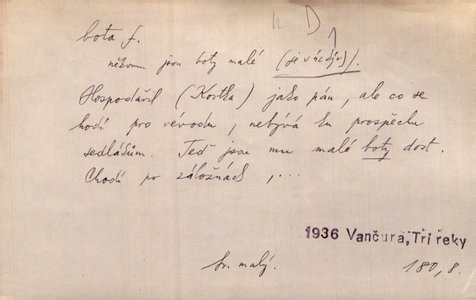 n D
bota f.
někomu jsou boty malé
Hospodařil (Kostka) jako pán, ale co se
hodí pro vévodu, nebývá ku prospěchu
sedlákům. Teď jsou mu malé boty dost.
Chodí po záložnách, ...
1936 Vančura, Tři řeky
sr. malý.
180, 8.